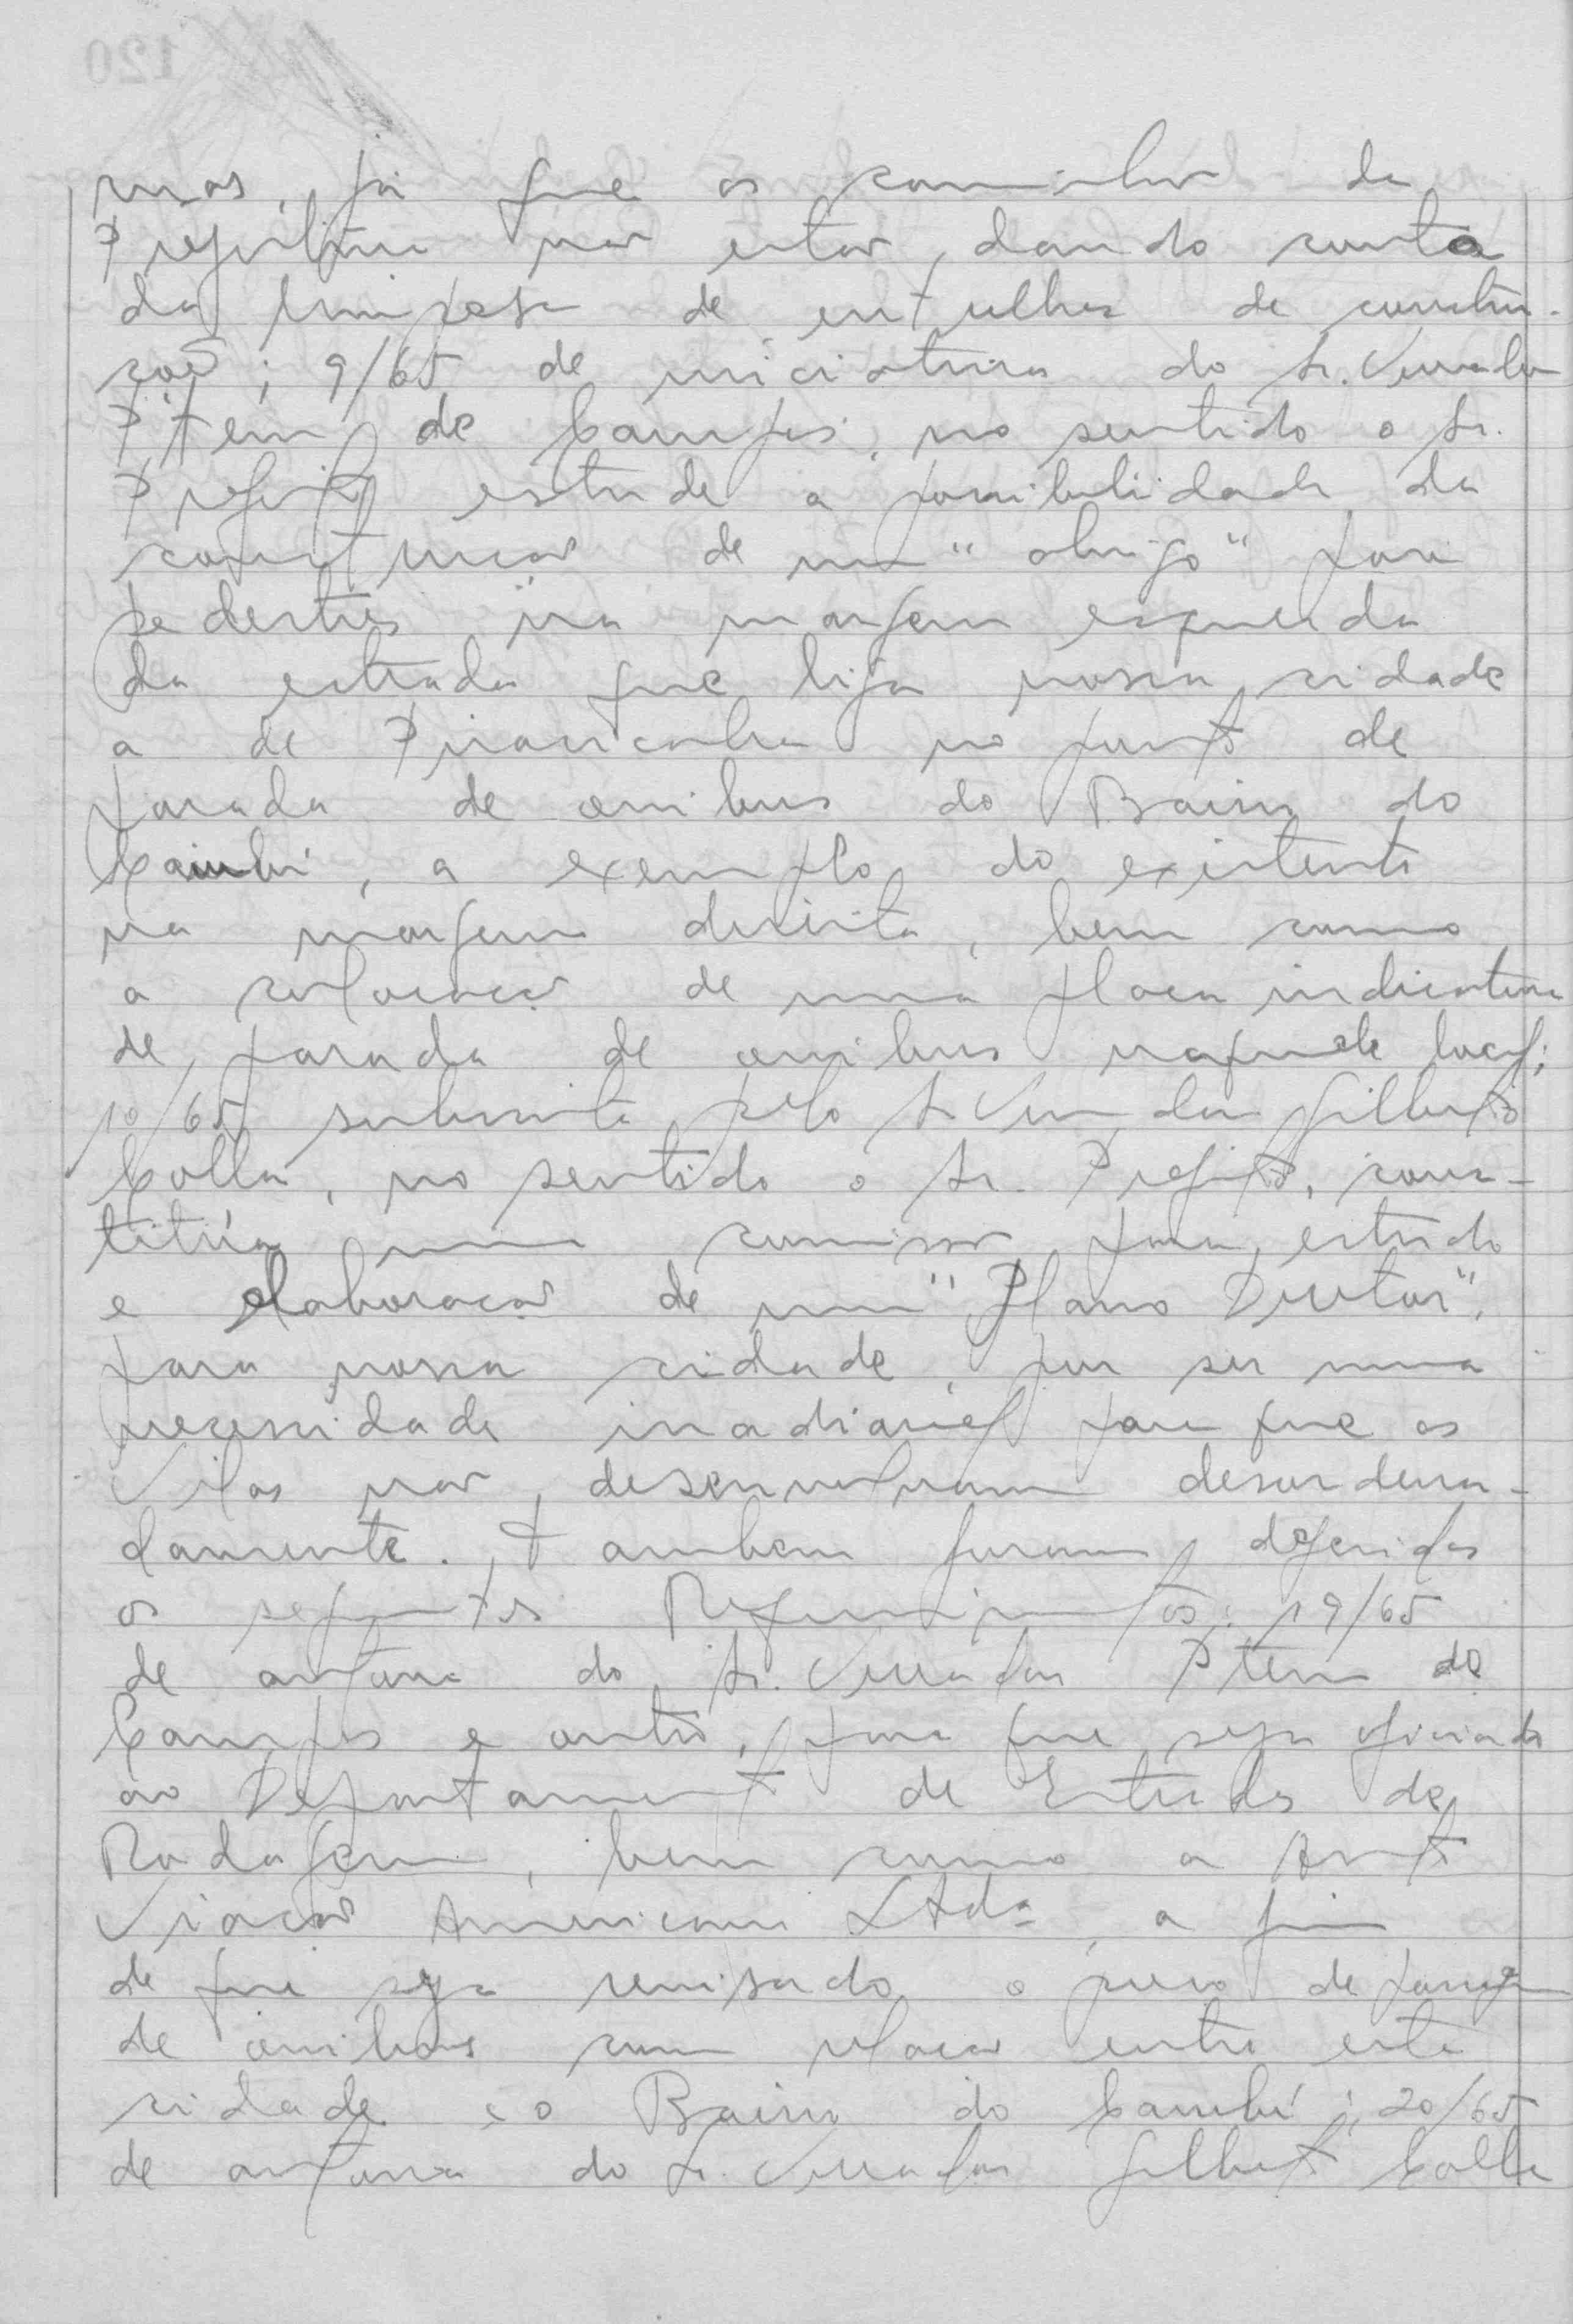 mas, já que os caminhões da
Prefeitura não estar dando conta
da limpesa de entulhos de constru-
ções; 9/65 de iniciativa do Sr. Vereador
de Campos, no sentido o Sr.
Prefeito estude a possibilidade da
construção de um "abrigo" para
pedestres na margem esquerda
da estrada que liga nossa cidade
a de Piracicaba no ponto de
parada de onibus do Bairro do
Caiubi, a exemplo do existente
na margem direita, bem como
a colocação de uma placa indicativa
de parada de onibus naquele local;
10/65 subscrita pelo Sr Vereador Gilberto
Colla, no sentido o Sr. Prefeito, cons-
titúa uma comissão para estudo
e elaboração de um "Plano Diretor",
para nossa cidade, por ser uma
necessidade inadiavel para que as
Vilas não desenvolvam desordena-
damente. Tambem foram deferidos
os seguintes Requerimentos: 19/65
de autoria do Sr. Vereador de
Campos e outro, para que seja oficiado
ao Departamento de Estradas de
Rodagem, bem como a Auto
Viação Americana Ltda, a fim
de que seja revisado o preço de passagem
de onibus com relação entre esta
cidade e o Bairro do Caiubi; 20/65
de autoria do Sr. Vereador Gilberto Colla